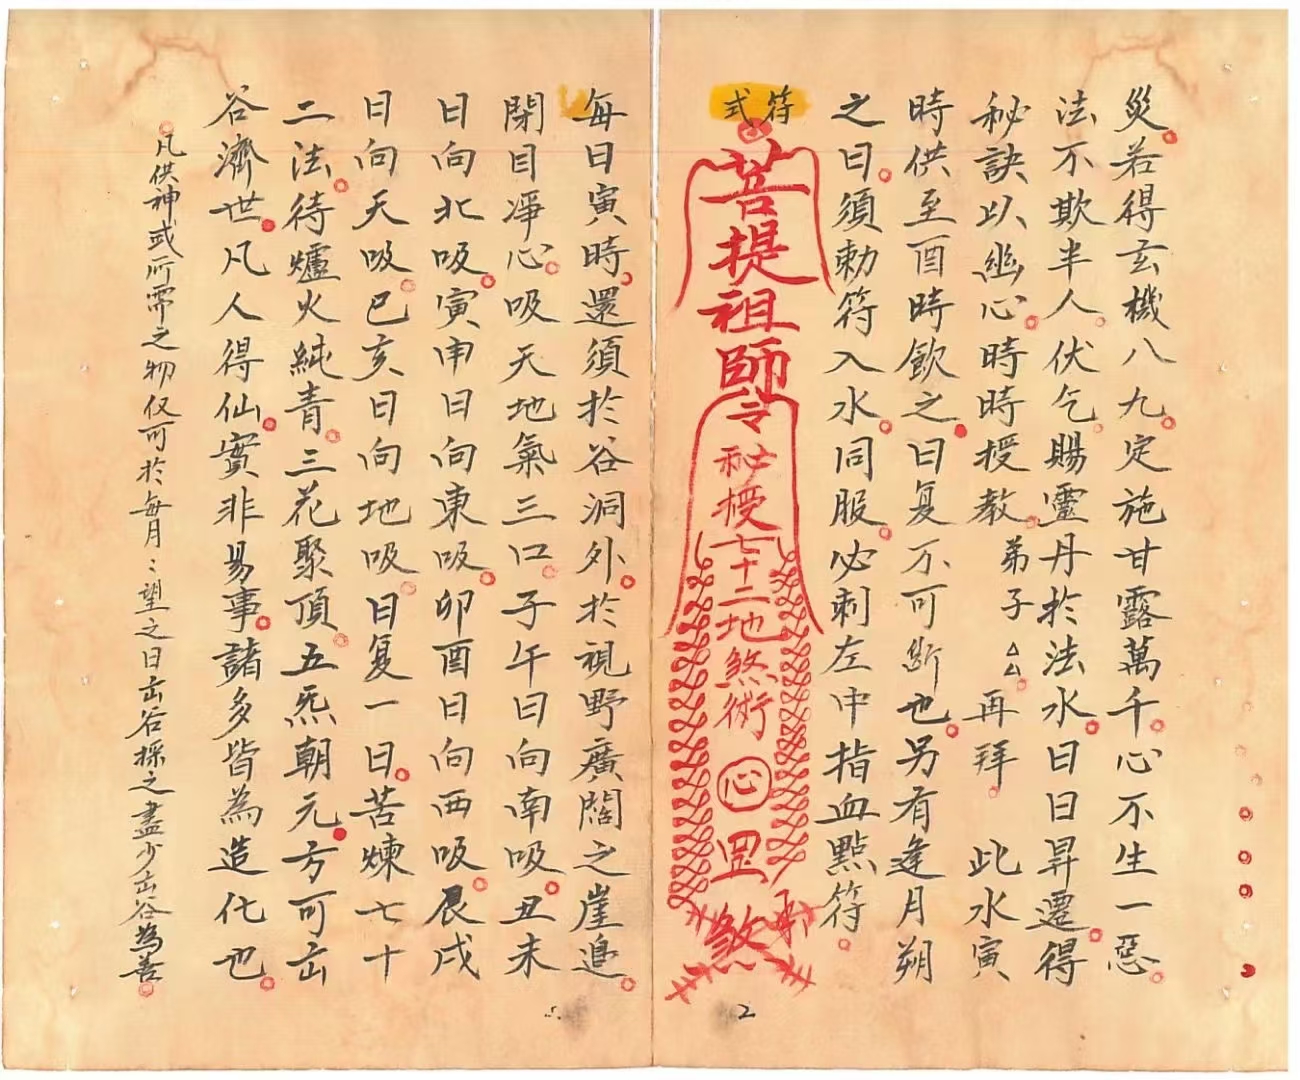 災若得玄機八九定施甘露萬千心不生一惡
法不欺半人伏乞賜靈丹於法水日日昇遷得
秘訣以幽心時時授教弟子△△再拜 此水寅
時供至酉時飲之日复不可斷也另有逢月朔
之日須勅符入水同服必刺左中指血點符
符式
菩提祖師令
秘授七十二地煞術
心
罡
煞
2
每日寅時還須於谷洞外於視野廣闊之崖邊
閉目凈心吸天地氣三口子午日向南吸丑未
日向北吸寅申日向東吸卯酉日向西吸辰戌
日向天吸巳亥日向地吸日复一日苦煉七十
二法待爐火純青三花聚頂五炁朝元方可出
谷濟世凡人得仙實非易事諸多皆為造化也
凡供神或所需之物仅可於每月:望之日出谷採之盡少出谷為善